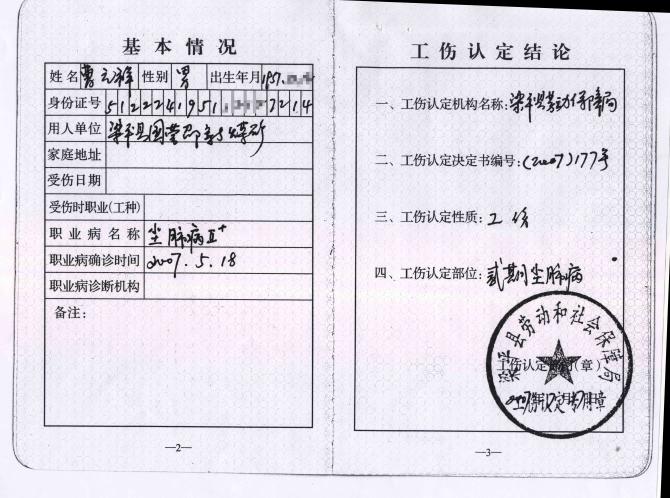 基本情况
姓名 曹元祥 性别 男 出生年月 1957.
身份证号 512224195 7214
用人单位 梁平县国营
家庭地址
受伤日期
受伤时职业(工种)
职业病名称 尘肺病II+
职业病确诊时间 2007.5.18
职业病诊断机构
备注:
—2—
工伤认定结论
一、工伤认定机构名称:梁平县劳动保障局
二、工伤认定决定书编号:(2007)177号
三、工伤认定性质:工伤
四、工伤认定部位:贰期尘肺病
梁平县劳动和社会保障局
工伤认定 (章)
工伤认定专用章
—3—